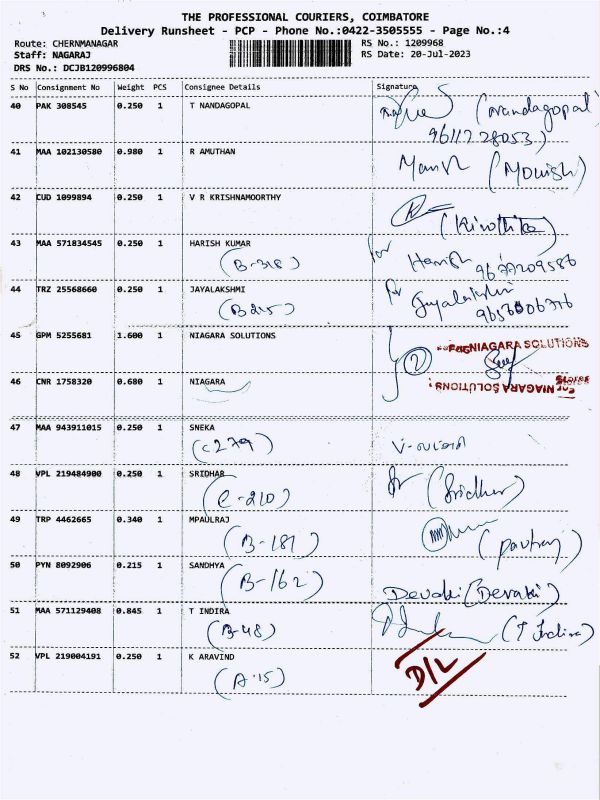 THE PROFESSIONAL COURIERS, COIMBATORE
Delivery Runsheet - PCP - Phone No.:0422-3505555 - Page No.:4
Route: CHERNMANAGAR
RS No.: 1209968
Staff: NAGARAJ
RS Date: 20-Jul-2023
DRS No.: DCJB120996804
S No Consignment No Weight PCS Consignee Details Signature
40 PAK 308545 0.250 1 T NANDAGOPAL (Nandagopal)
9611728053
41 MAA 102130580 0.980 1 R AMUTHAN (Monish)
42 CUD 1099894 0.250 1 V R KRISHNAMOORTHY
43 MAA 571834545 0.250 1 HARISH KUMAR for Harish
(B-318) 9677209586
44 TRZ 25568660 0.250 1 JAYALAKSHMI for
(B215)
45 GPM 5255681 1.600 1 NIAGARA SOLUTIONS
2 NIAGARA SOLUTIONS
46 CNR 1758320 0.680 1 NIAGARA
For NIAGARA SOLUTIONS
Stores
47 MAA 943911015 0.250 1 SNEKA
(C279)
48 VPL 219484900 0.250 1 SRIDHAR (Sridher)
(C-210)
49 TRP 4462665 0.340 1 MPAULRAJ
(B-181)
50 PYN 8092906 0.215 1 SANDHYA
(B-162) Devaki (Devaki)
51 MAA 571129408 0.845 1 T INDIRA (T Indira)
(B-48)
52 VPL 219004191 0.250 1 K ARAVIND D/L
(A-15)